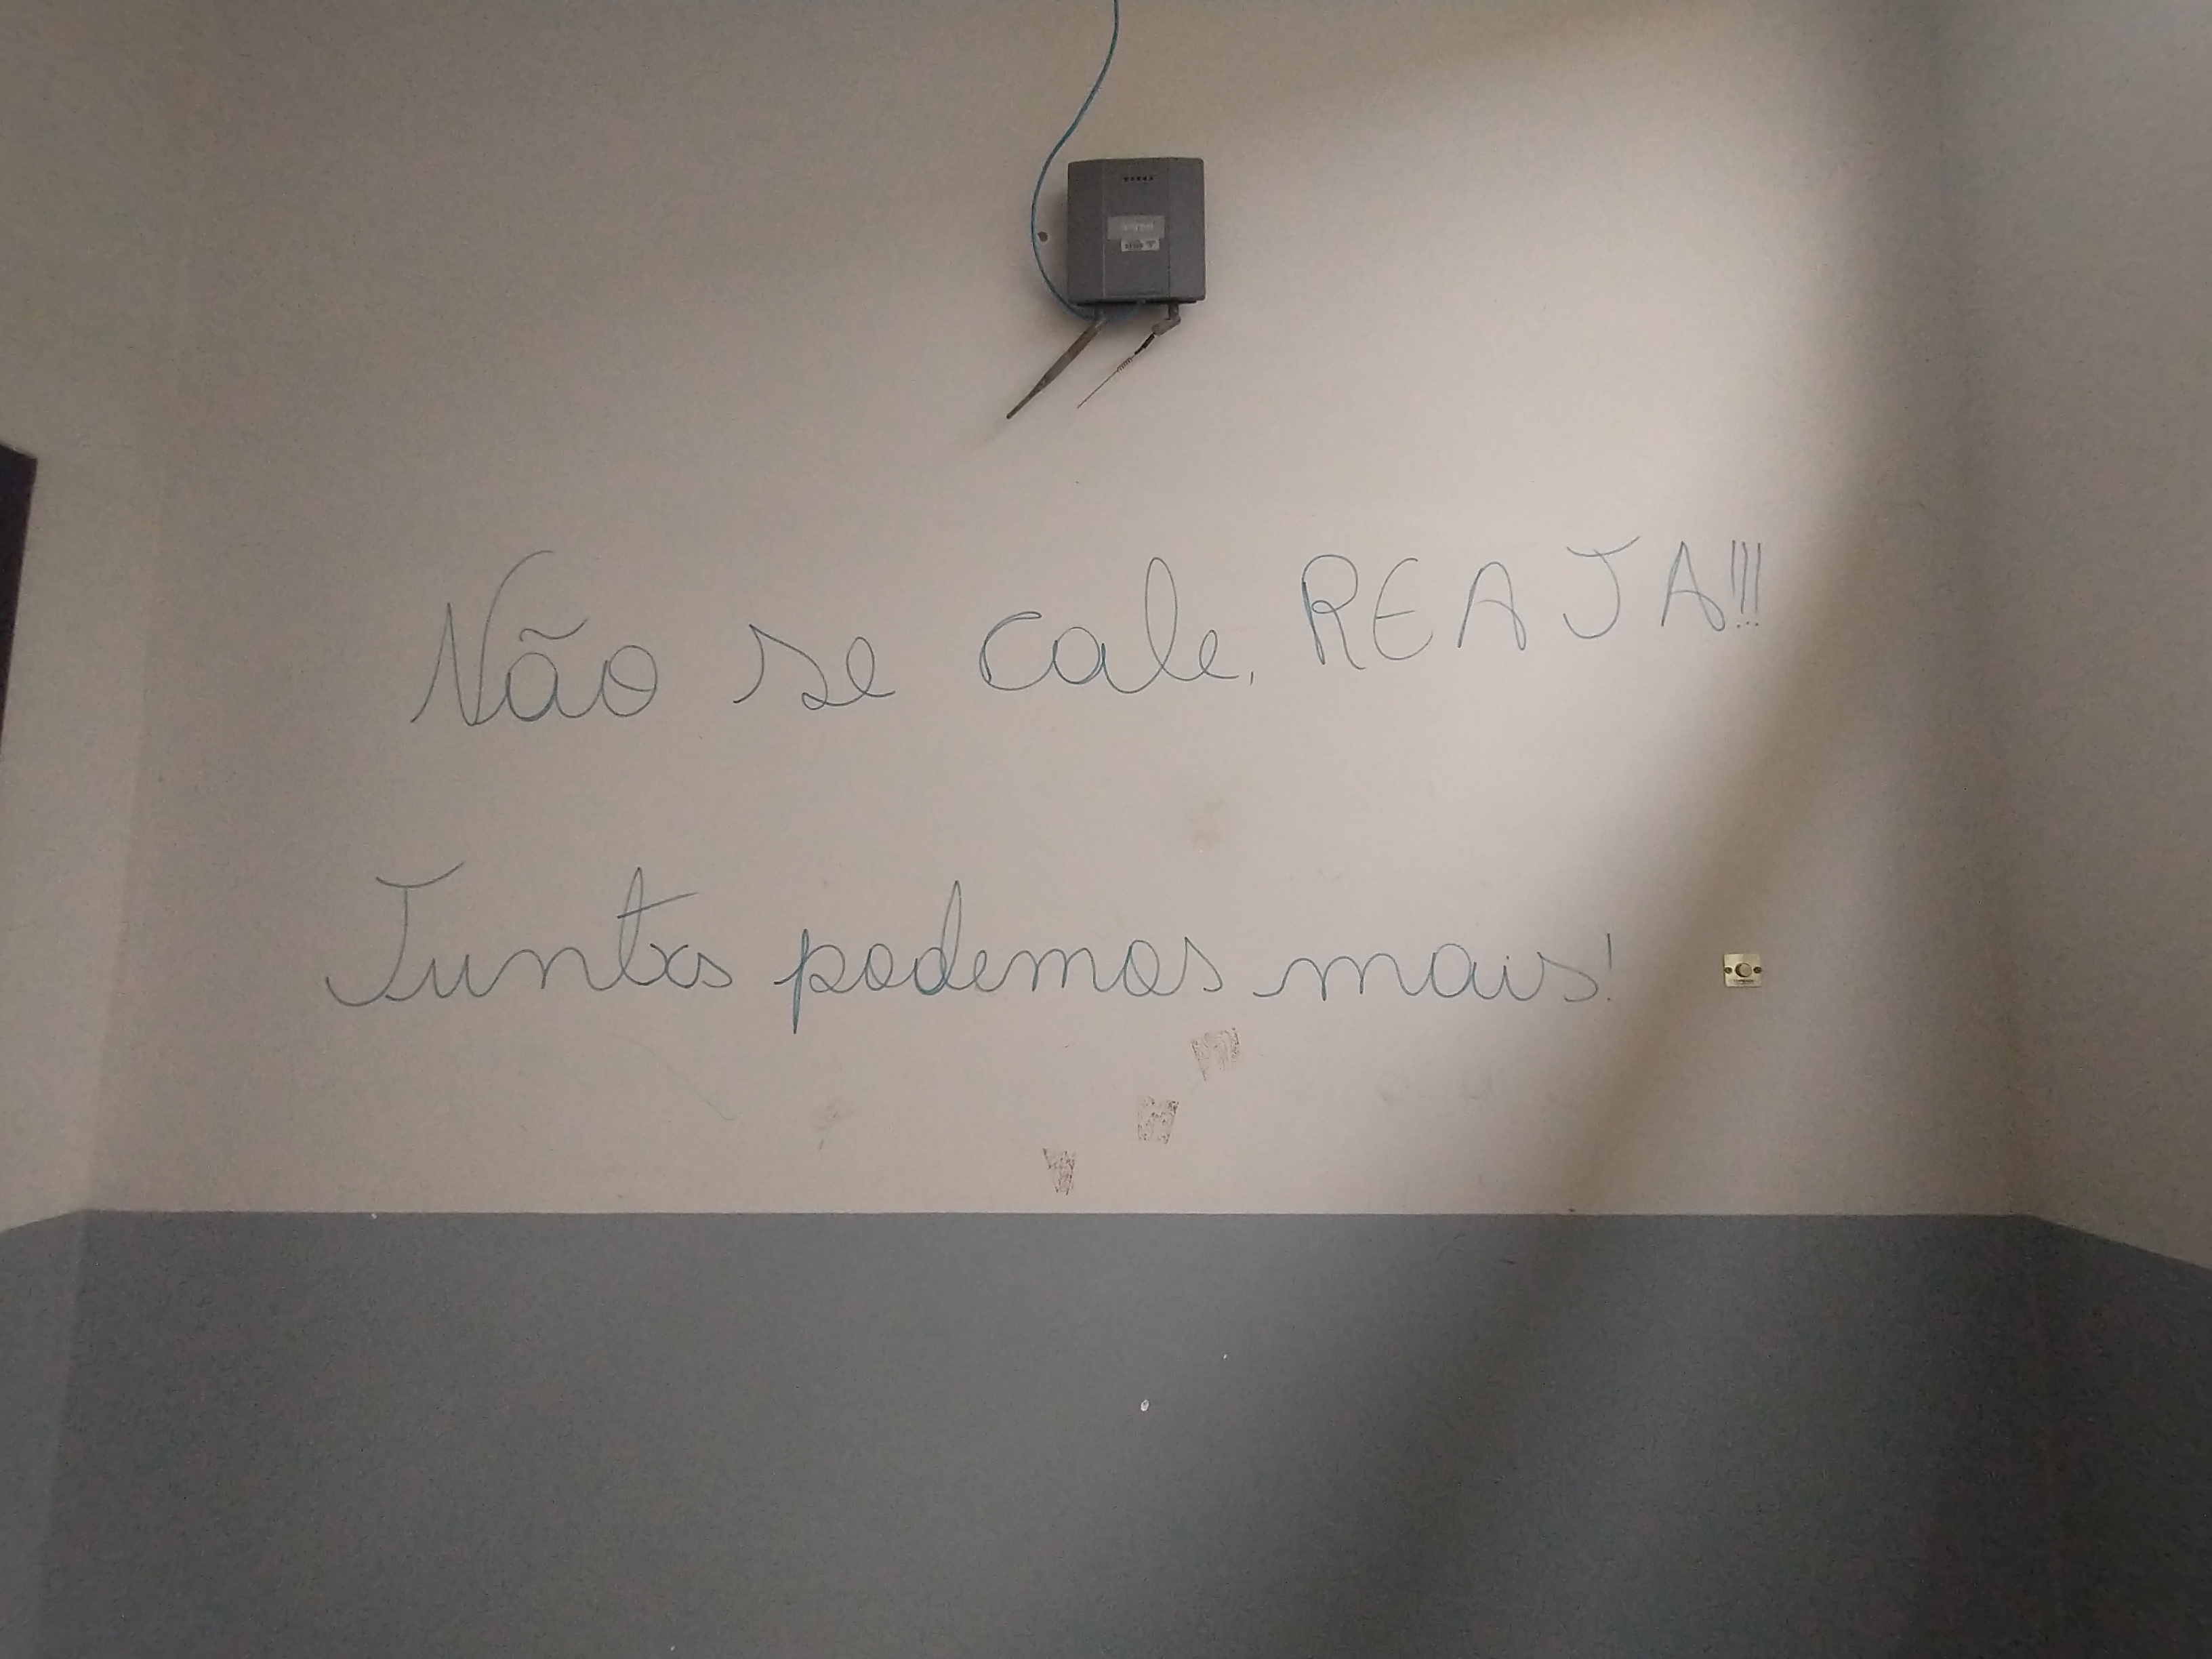 Não se cale, REAJA!!!
Juntxs podemos mais!